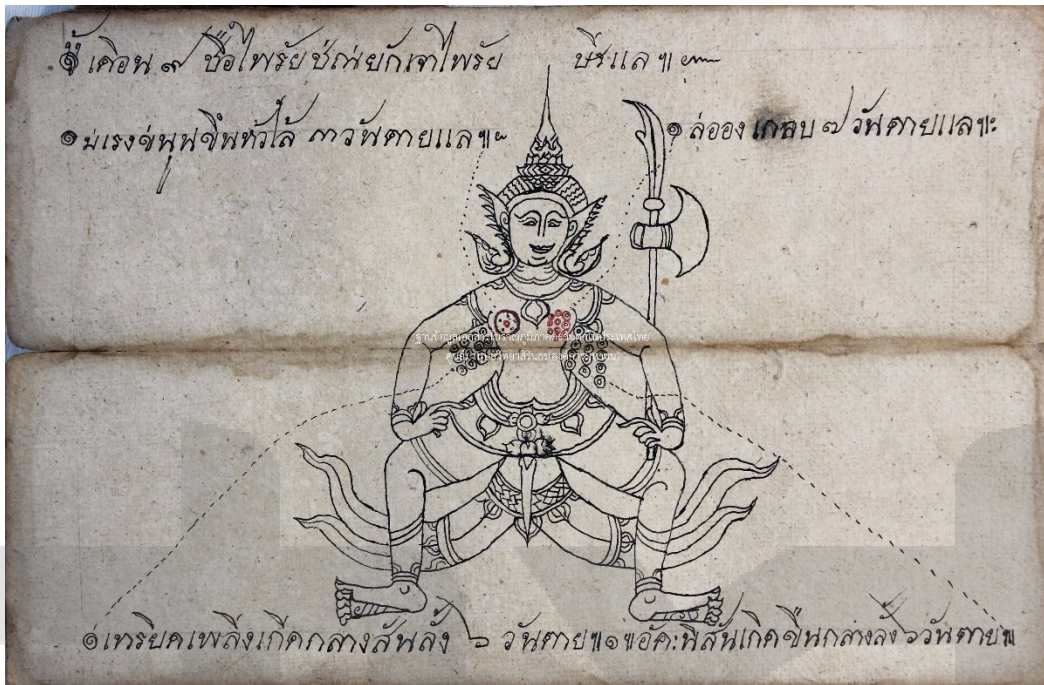 ๏ เดือน ๙ ชื่อไพรัยช่นยักเจ้าไพรัย ษีรแล ฯ
๑ มเรงขนุนขึ้นหัวไล้ ๓ วันตายแล ฯ
๑ ล่ออง เกลบ ๗ วันตายแล ฯ
ฐานข้อมูลเอกสารโบราณภูมิภาคตะวันตกในประเทศไทย
ศูนย์มานุษยวิทยาสิรินธร(องค์การมหาชน)
๑ เทริยดเพลิงเกิดกลางสันลัง ๖ วันตาย ฯ ๑ ฯ อัคะนีสันเกิดขึ้นกลางลัง ๖ วันตาย ฯ